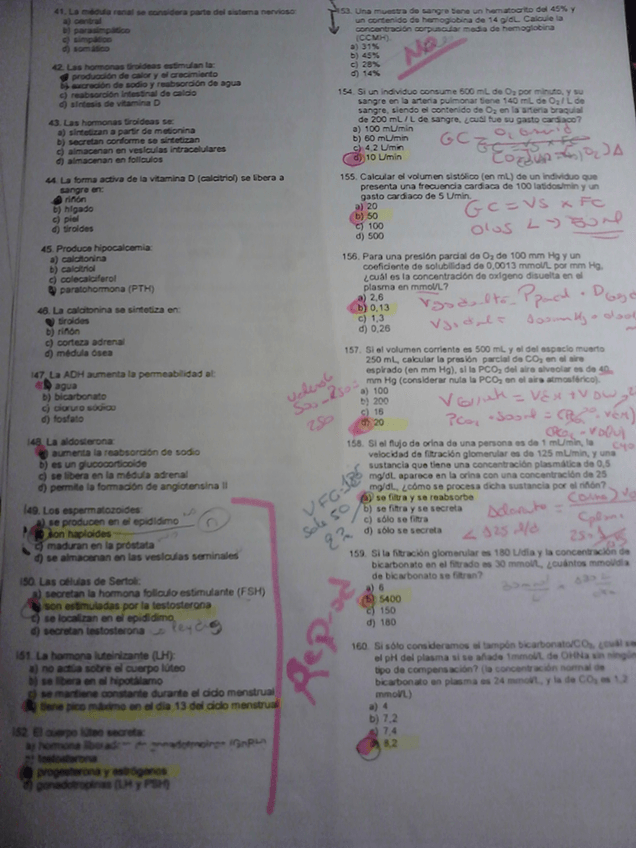 41. La médula renal se considera parte del sistema nervioso:
a) central
b) parasimpático
c) simpático
d) somático
42. Las hormonas tiroideas estimulan la:
producción de calor y el crecimiento
b) excreción de sodio y reabsorción de agua
c) reabsorción intestinal de calcio
d) síntesis de vitamina D
43. Las hormonas tiroideas se:
a) sintetizan a partir de metionina
b) secretan conforme se sintetizan
c) almacenan en vesículas intracelulares
d) almacenan en folículos
44. La forma activa de la vitamina D (calcitriol) se libera a
sangre en:
riñón
b) hígado
c) piel
d) tiroides
45. Produce hipocalcemia:
a) calcitonina
b) calcitriol
c) colecalciferol
paratohormona (PTH)
46. La calcitonina se sintetiza en:
tiroides
b) riñón
c) corteza adrenal
d) médula ósea
147. La ADH aumenta la permeabilidad al:
agua
b) bicarbonato
c) cloruro sódico
d) fosfato
148. La aldosterona:
aumenta la reabsorción de sodio
b) es un glucocorticoide
c) se libera en la médula adrenal
d) permite la formación de angiotensina II
149. Los espermatozoides:
a) se producen en el epidídimo
son haploides
c) maduran en la próstata
d) se almacenan en las vesículas seminales
150. Las células de Sertoli:
a) secretan la hormona folículo estimulante (FSH)
son estimuladas por la testosterona
c) se localizan en el epidídimo
d) secretan testosterona
151. La hormona luteinizante (LH):
a) no actúa sobre el cuerpo lúteo
b) se libera en el hipotálamo
c) se mantiene constante durante el ciclo menstrual
tiene pico máximo en el día 13 del ciclo menstrual
152. El cuerpo lúteo secreta:
a) hormona
b) testosterona
progesterona y estrógenos
d) gonadotropinas (LH y PSH)
Reprod
153. Una muestra de sangre tiene un hematocrito del 45% y
un contenido de hemoglobina de 14 g/dL. Calcule la
concentración corpuscular media de hemoglobina
(CCMH).
a) 31%
b) 45%
c) 28%
d) 14%
No
154. Si un individuo consume 600 mL de O₂ por minuto, y su
sangre en la arteria pulmonar tiene 140 mL de O₂ / L de
sangre, siendo el contenido de O₂ en la arteria braquial
de 200 mL / L de sangre, ¿cuál fue su gasto cardiaco?
a) 100 mL/min
b) 60 mL/min
c) 4,2 L/min
d) 10 L/min
155. Calcular el volumen sistólico (en mL) de un individuo que
presenta una frecuencia cardiaca de 100 latidos/min y un
gasto cardiaco de 5 L/min.
a) 20
b) 50
c) 100
d) 500
GC = VS x FC
0'05 L → 50 ml
156. Para una presión parcial de O₂ de 100 mm Hg y un
coeficiente de solubilidad de 0,0013 mmol/L por mm Hg,
¿cuál es la concentración de oxígeno disuelta en el
plasma en mmol/L?
a) 2,6
b) 0,13
c) 1,3
d) 0,26
157. Si el volumen corriente es 500 mL y el del espacio muerto
250 mL, calcular la presión parcial de CO₂ en el aire
espirado (en mm Hg), si la PCO₂ del aire alveolar es de 40
mm Hg (considerar nula la PCO₂ en el aire atmosférico).
a) 100
b) 200
c) 16
d) 20
158. Si el flujo de orina de una persona es de 1 mL/min, la
velocidad de filtración glomerular es de 125 mL/min, y una
sustancia que tiene una concentración plasmática de 0,5
mg/dL aparece en la orina con una concentración de 25
mg/dL, ¿cómo se procesa dicha sustancia por el riñón?
a) se filtra y se reabsorbe
b) se filtra y se secreta
c) sólo se filtra
d) sólo se secreta
159. Si la filtración glomerular es 180 L/día y la concentración de
bicarbonato en el filtrado es 30 mmol/L, ¿cuántos mmol/día
de bicarbonato se filtran?
a) 6
b) 5400
c) 150
d) 180
160. Si sólo consideramos el tampón bicarbonato/CO₂, ¿cuál se
el pH del plasma si se añade 1mmol/L de OHNa sin ningún
tipo de compensación? (la concentración normal de
bicarbonato en plasma es 24 mmol/L, y la de CO₂ es 1,2
mmol/L)
a) 4
b) 7,2
c) 7,4
8,2